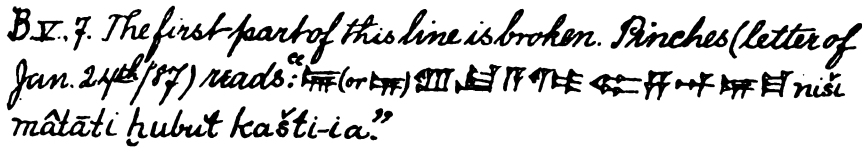 B V. 7. The first part of this line is broken. Pinches (letter of
Jan. 24th/87) reads: "(or) niši
mâtāti ḫubut kašti-ia."